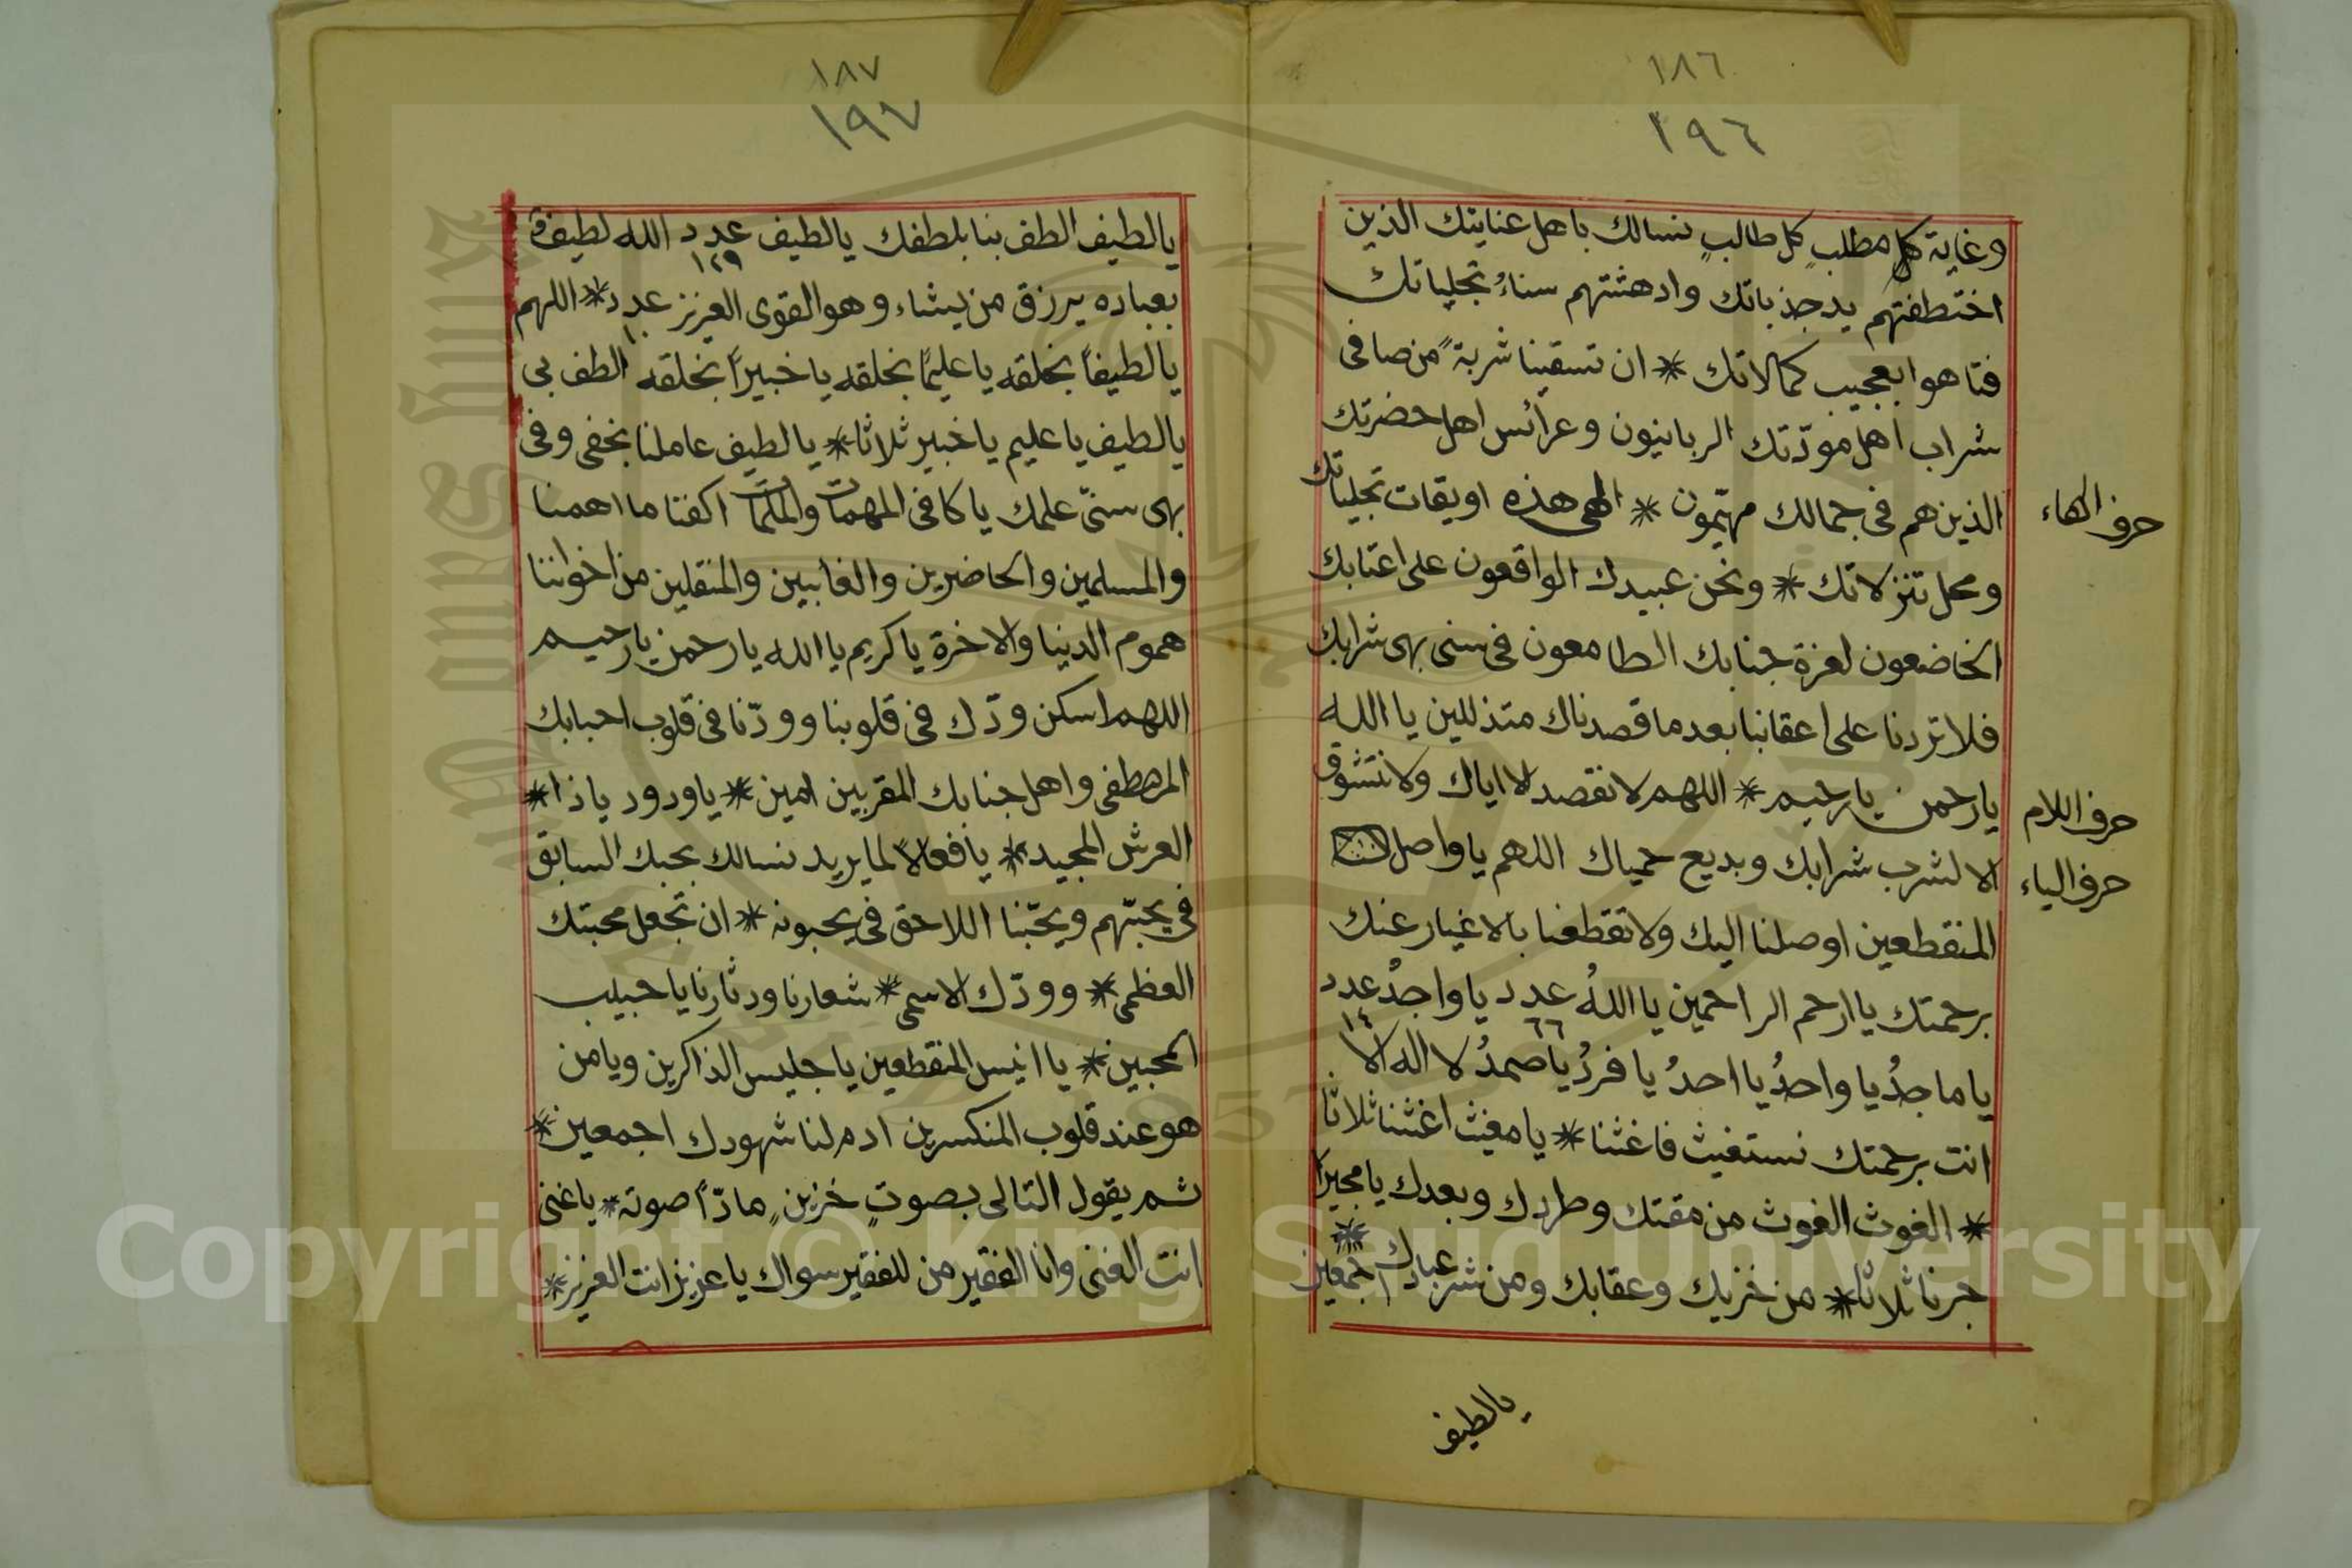 ١٨٦
١٩٦
وغاية كل مطلب كل طالبٍ نسالك باهل عنايتك الذين
اختطفتهم يد جذباتك وادهشتهم سناءُ تجلياتك
فتاهوا بعجيب كمالاتك * ان تسقينا شربةً من صافى
شراب اهل مودّتك الربانيون وعرائس اهل حضرتك
الذين هم فى جمالك مهيّمون * الهى هذه اويقات تجلياتك
ومحل تنزلاتك * ونحن عبيدك الواقعون على اعتابك
الخاضعون لعزة جنابك الطامعون فى سنى بهى شرابك
فلا تردنا على اعقابنا بعد ما قصدناك متذللين يا الله
يا رحمن يا رحيم * اللهم لا نقصد لا اياك ولا نتشوق
الا لشرب شرابك وبديع حمياك اللهم يا واصل
المنقطعين اوصلنا اليك ولا تقطعنا بالاغيار عنك
برحمتك يا ارحم الراحمين يا اللهُ عدد ٦٦ يا واجدُ عدد ١٤
يا ماجدُ يا واحدُ يا احدُ يا فردُ يا صمدُ لا اله الا
انت برحمتك نستغيث فاغثنا * يا مغيث اغثنا ثلاثا
* الغوث الغوث من مقتك وطردك وبعدك يا مجيرًا
جرنا ثلاثًا * من خزيك وعقابك ومن شر عبادك اجمعين *
حرف الهاء
حرف اللام
حرف الياء
يالطيف
١٨٧
١٩٧
يالطيف الطف بنا بلطفك يالطيف عدد ١٢٩ الله لطيف
بعباده يرزق من يشاء وهو القوى العزيز عدد ١٠ * اللهم
يالطيفًا بخلقه يا عليمًا بخلقه يا خبيرًا بخلقه الطف بى
يالطيف يا عليم يا خبير ثلاثا * يالطيف عاملنا بخفى وفى
بهى سنىّ علمك يا كافى المهمات والملمات اكفنا ما اهمنا
والمسلمين والحاضرين والغايبين والمنقلين من اخواننا
هموم الدنيا والاخرة يا كريم يا الله يا رحمن يا رحيم
اللهم اسكن ودّك فى قلوبنا وودّنا فى قلوب احبابك
المصطفى واهل جنابك المقربين امين * يا ودود ياذا *
العرش المجيد * يا فعالاً لما يريد نسالك بحبك السابق
فى يحبّهم ويحبّنا اللاحق فى يحبونه * ان تجعل محبتك
العظمى * وودّك الاسمى * شعارنا ودثارنا يا حبيب
المحبين * يا انيس المنقطعين يا جليس الذاكرين ويامن
هو عند قلوب المنكسرين ادم لنا شهودك اجمعين *
ثم يقول التالى بصوتٍ خزينٍ مادّاً صوته * يا غنى
انت الغنى وانا الفقير من للفقير سواك يا عزيز انت العزيز *
Copyright © King Saud University